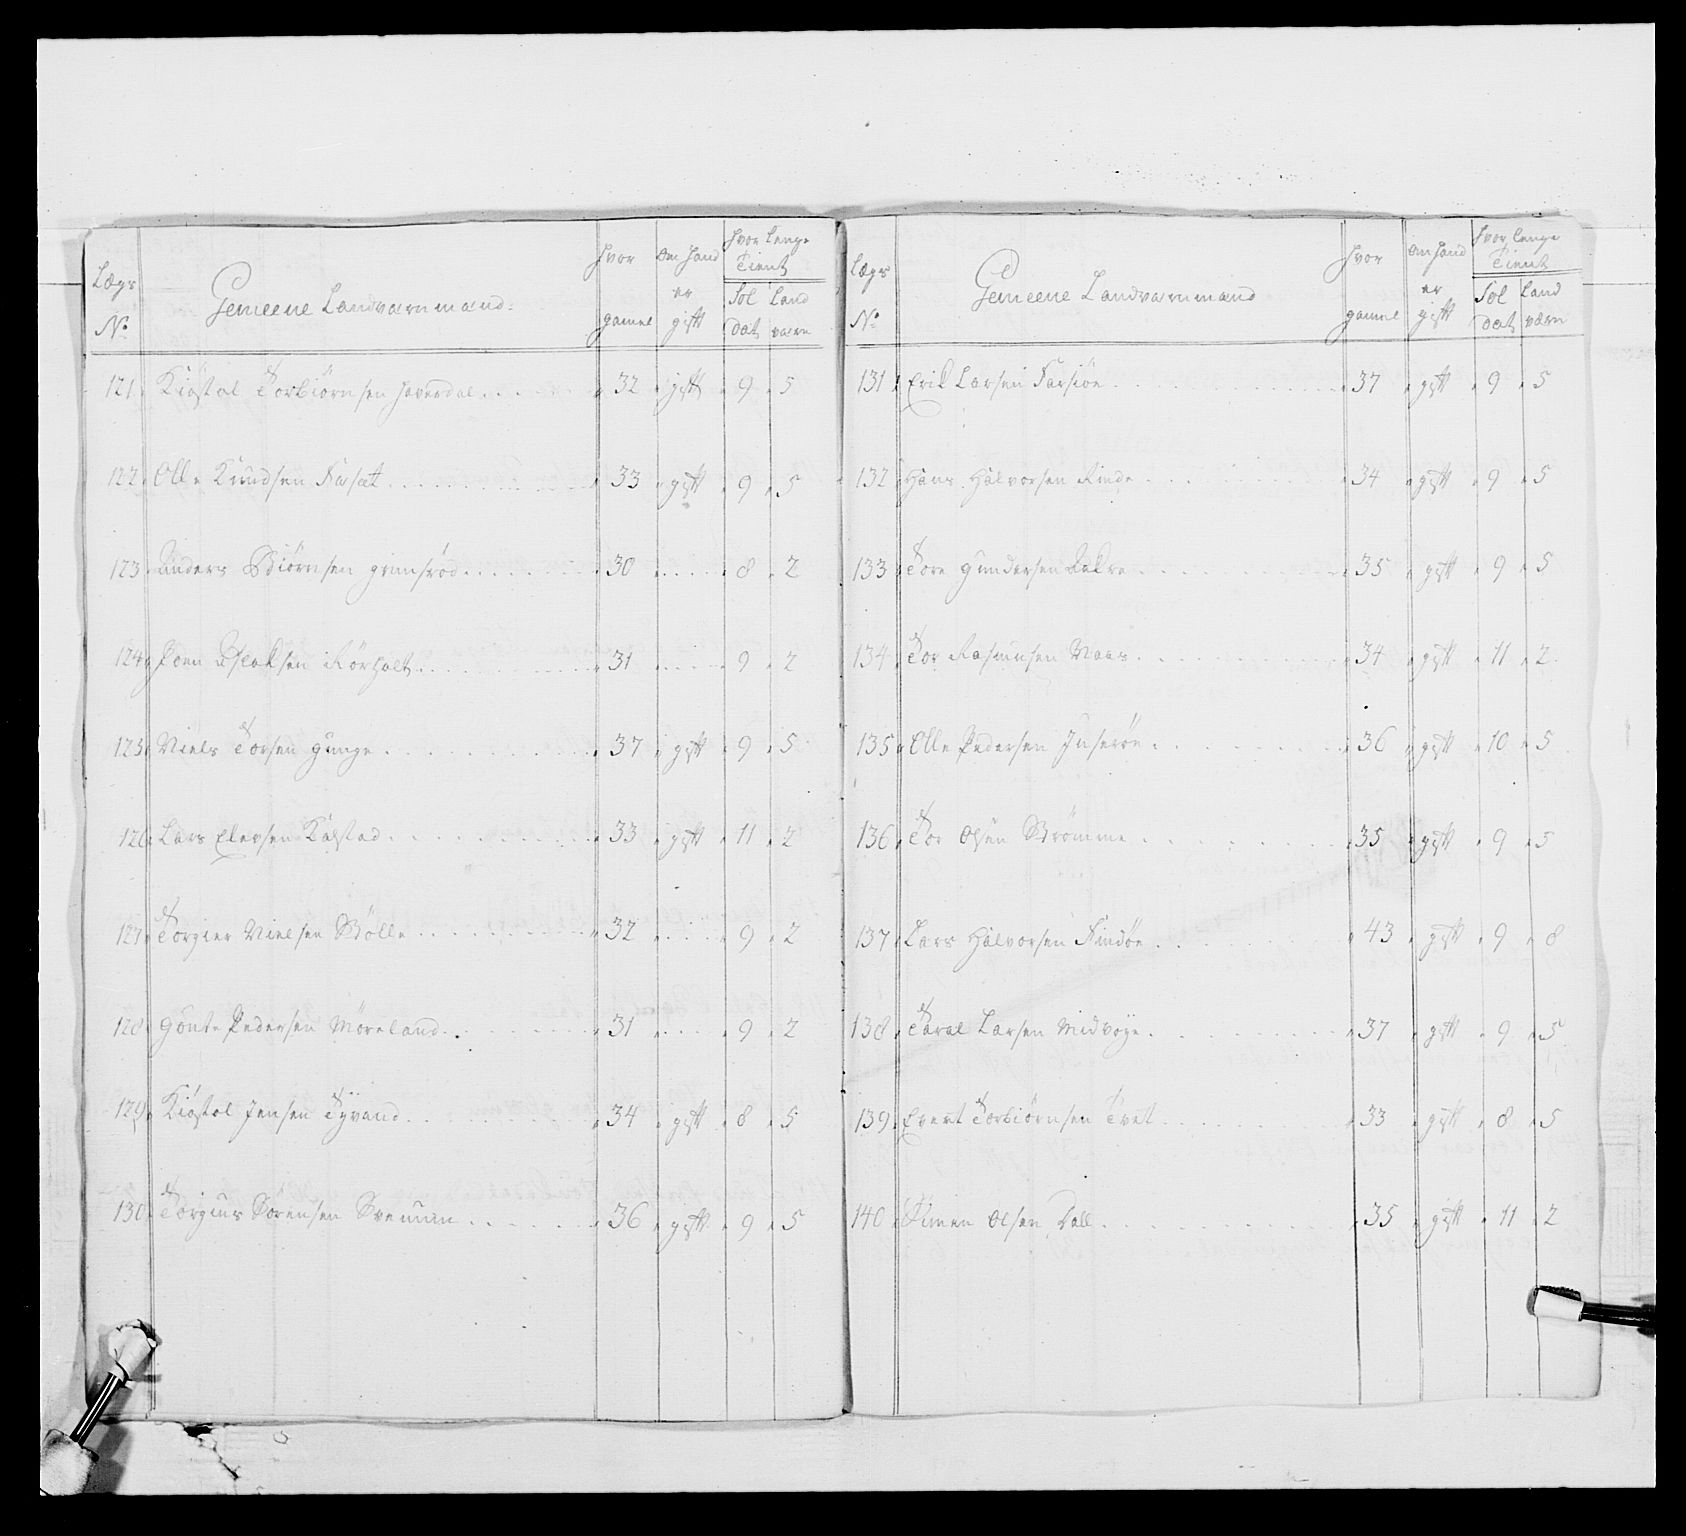 Lægs No | Gemeene Landværnmænd: | hvor gamel | om hand er gift | hvor lenge Tient Sol dat | Land værn
121 Kiøstol Torbiørnsen Haverdal 32 gift 9 5
122 Olle Knudsen Farsæt 33 gift 9 5
123 Anders Biørnsen grimsrød 30 8 2
124 Joen Aslaksen Rørholt 31 9 2
125 Niels Torsen gunge 37 gift 9 5
126 Lars Elevsen Kalstad 33 gift 11 2
127 Torgier Nielsen Bølle 32 9 2
128 Gonte Pedersen Møreland 31 9 2
129 Kiøstol Jensen Tyvand 34 gift 8 5
130 Torgius Sørensen Svenum 36 gift 9 5
Lægs No | Gemeene Landværnmænd | hvor gamel | om hand er gift | hvor lenge Tient Sol dat | Land værn
131 Erik Larsen Farsiøe 37 gift 9 5
132 Hans Halvorsen Rinde 34 gift 9 5
133 Tore Gundersen Aakre 35 gift 9 5
134 Tor Rasmusen Naas 34 gift 11 2
135 Olle Pedersen Juserøe 36 gift 10 5
136 Tor Olsen Strømme 35 gift 9 5
137 Lars Halvorsen Findøe 43 gift 9 8
138 Taral Larsen Midbøye 37 gift 9 5
139 Evert Torbiørnsen Tvet 33 gift 8 5
140 Simen Olsen Dall 35 gift 11 2